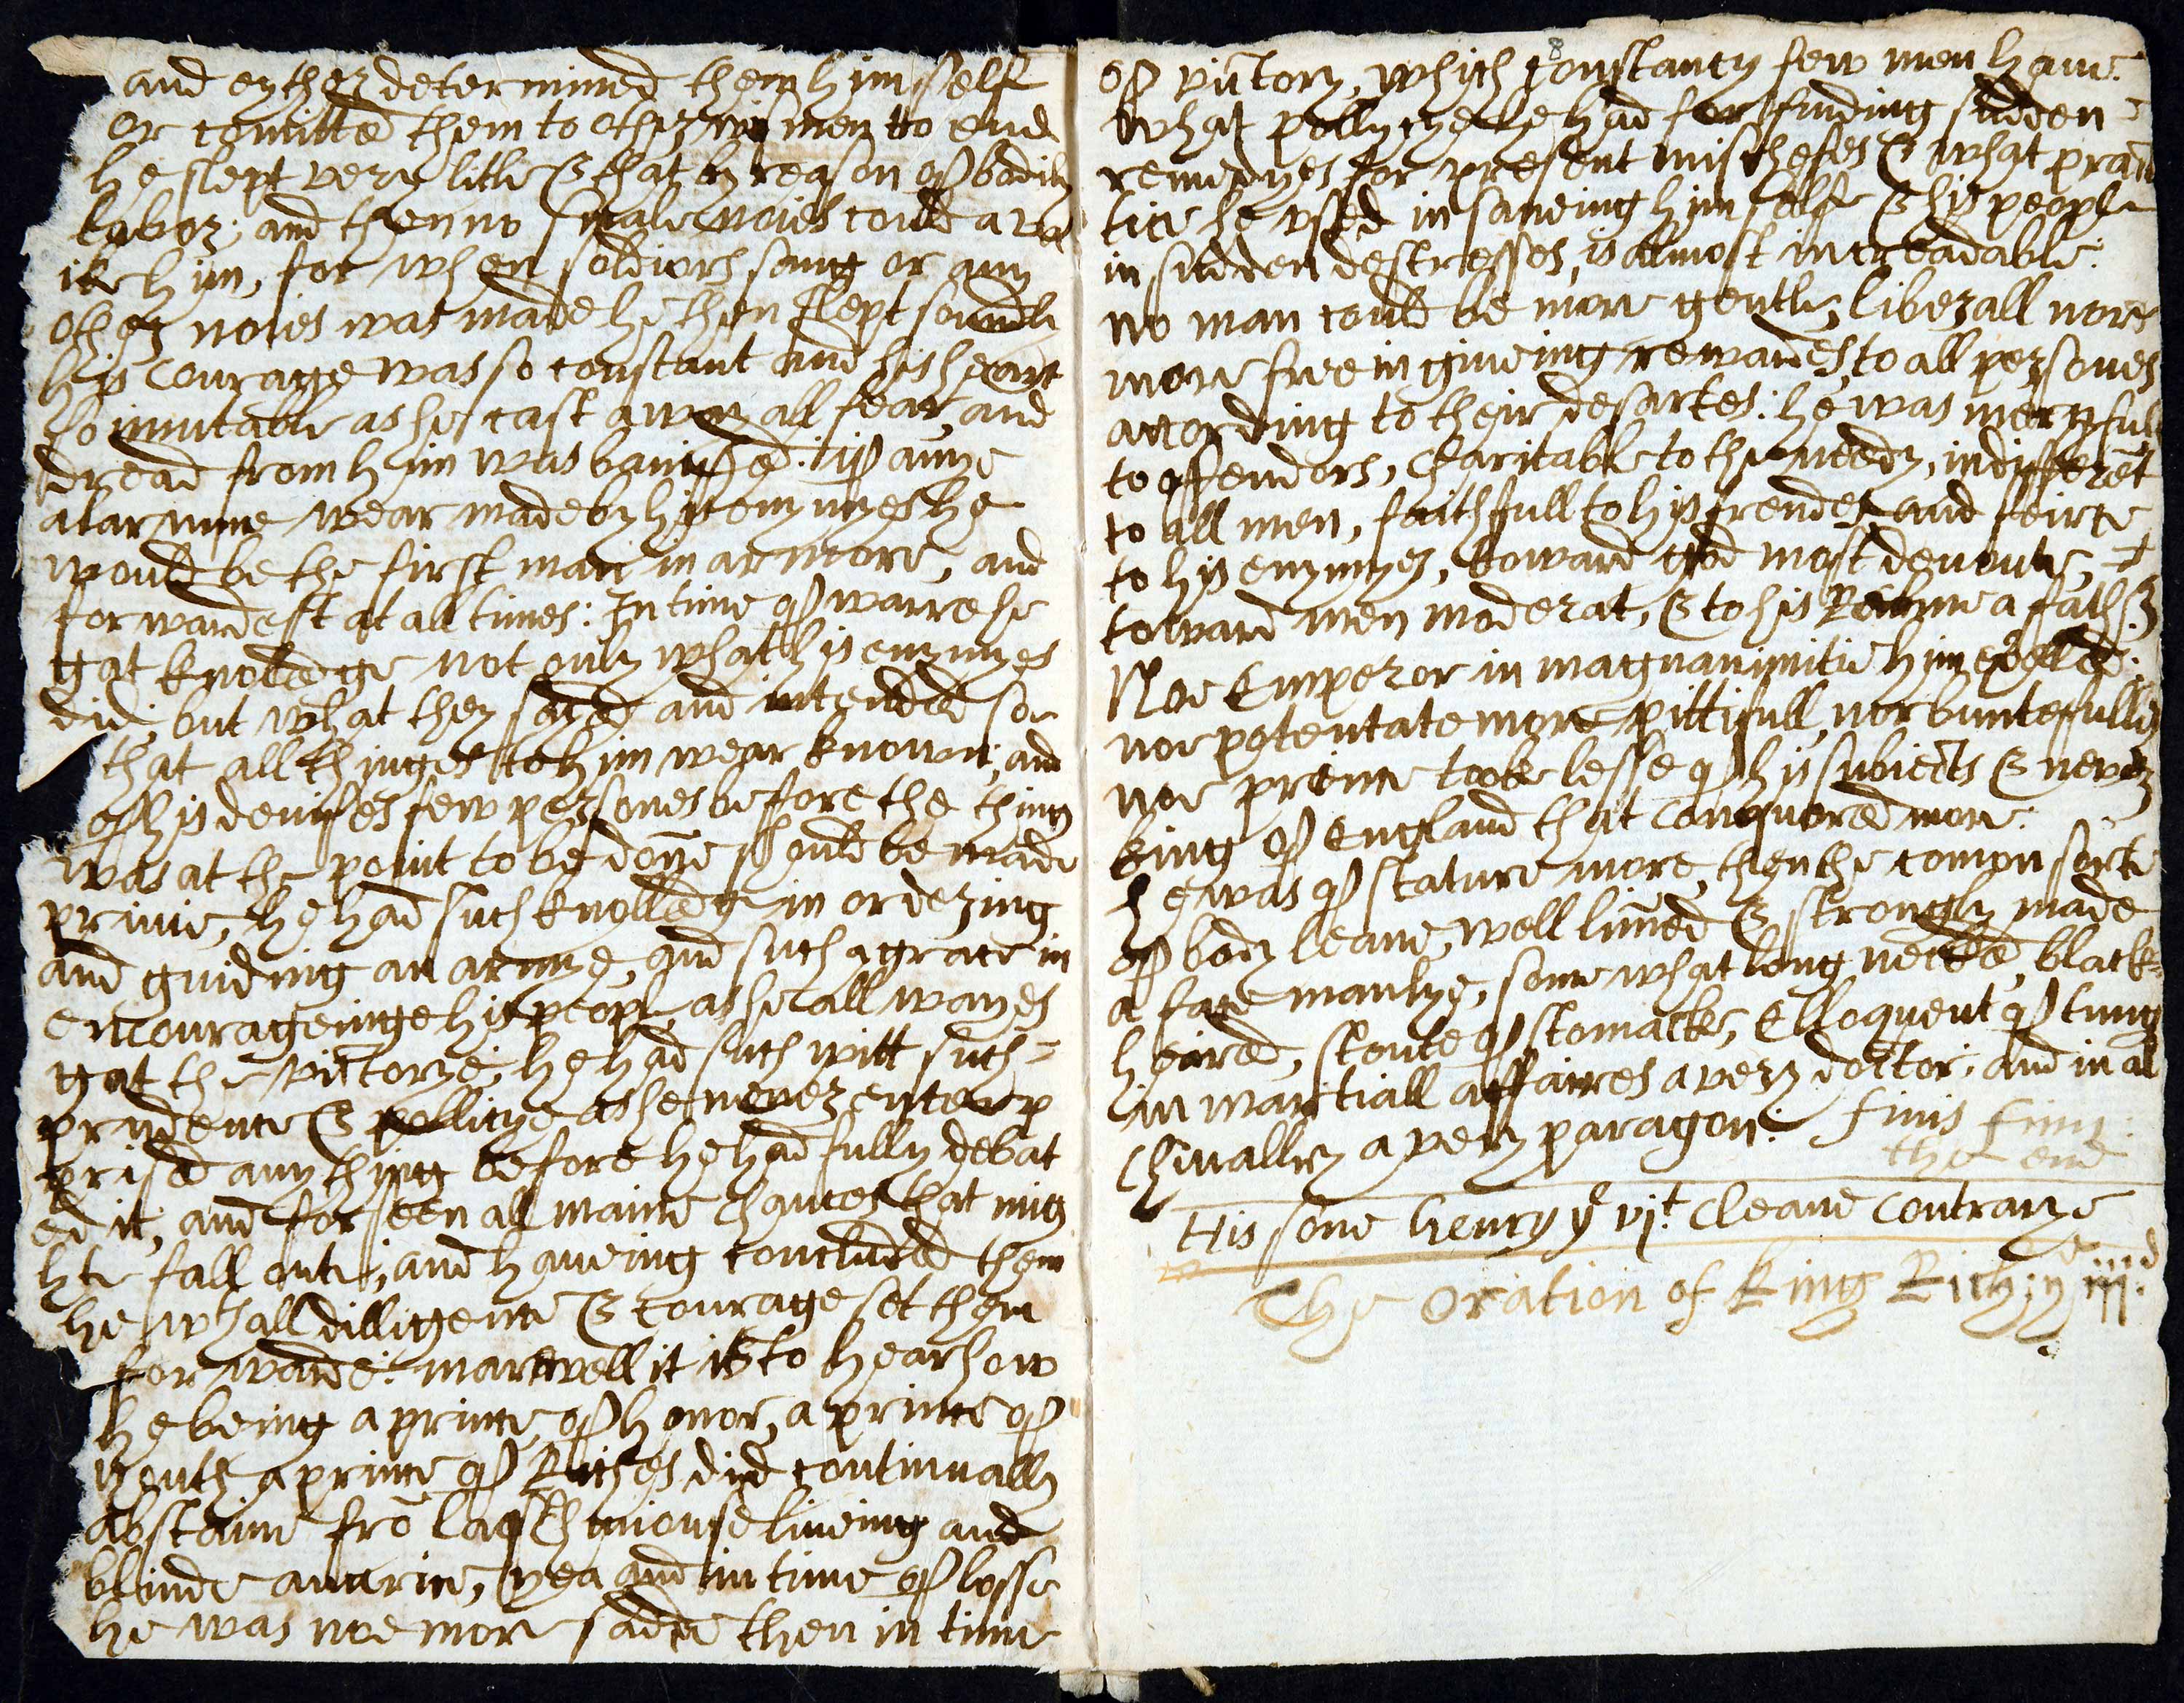 and eyther determined them himself
or comitted them to other men to end
he slept very litle & that by reason of bodily
labor; and then no smale noies could awa
ke him, for when soldiors song or any
other noies was made he then slept soundli
his courage was so constant and his heart
so imutable as he cast away all fear, and
dread from him was banished: if anye
alarmme wear made by his enymyes he
would be the first man in armore, and
forwardest at all times: In time of warre he
gat knoledge not only what his enymyes
did, but what they sayed and intended so
that all thinges to him wear known, and
of his devises few persones before the thing
was at the point to be donne should be made
privie, he had such knolledge in ordering
and guiding an armye, and such a grace in
encourageinge his peopl, as he all wayes
gat the victorye, he had such witt such =
prudence & pollicye as he never enterp
rised any thing before he had fully debat
ed it, and forseen all maine chances that mig
hte fall oute, and haveing concluded them
he wth all dilligence & courage set them
forwarde: marvell it is to hear how
he being a prince of honor, a prince of
youth, a prince of Riches did continually
abstaine frō lascivniouse liveing and
blinde avarice, yea and in time of losse
he was noe more sadd then in time
8
of victory, which constancy few men have.
what pollycye he had for finding sudden =
remedyes for present mischefes & what prac
tice he vsed in saveing himselfe & his people
in sudden destresses, is almost increadable.
no man could be more gentle, liberall nore
more free in giveing rewardes, to all persones
according to their desartes: he was mercyfull
to offendors, charitable to the needy, indifferēt
to all men, faithfull to his frendes, and feirce
to his enymyes, toward god most devoute, =
toward men moderat, & to his Realme a father
Noe Emperor in magnanimitie him excelled:
noe potentate more pittifull, nor buntefulle,
noe prince tooke lesse of his subiects & never
king of England that conquored more.
He was of stature more, then the comon sorte
of body leane, well limed & strongly made
a face manlye, some what long necked, black=
heired, stoute of stomacke, Elloquent of tung
in martiall affaires a very doctor, and in al
Chivallry a very paragon. finis finis
the end
His sone henry ye vjt. cleane contrarye
The oration of king Rich: ye iijd.